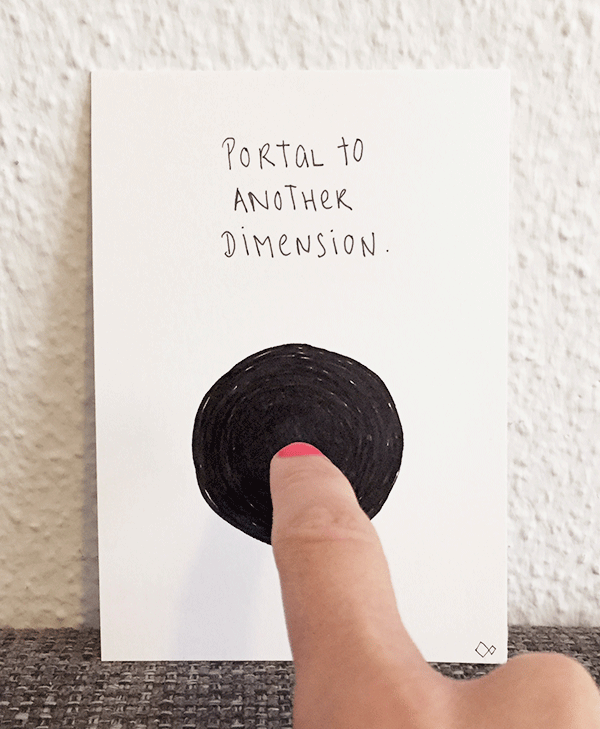 PORTAL TO
ANOTHER
DIMENSION.